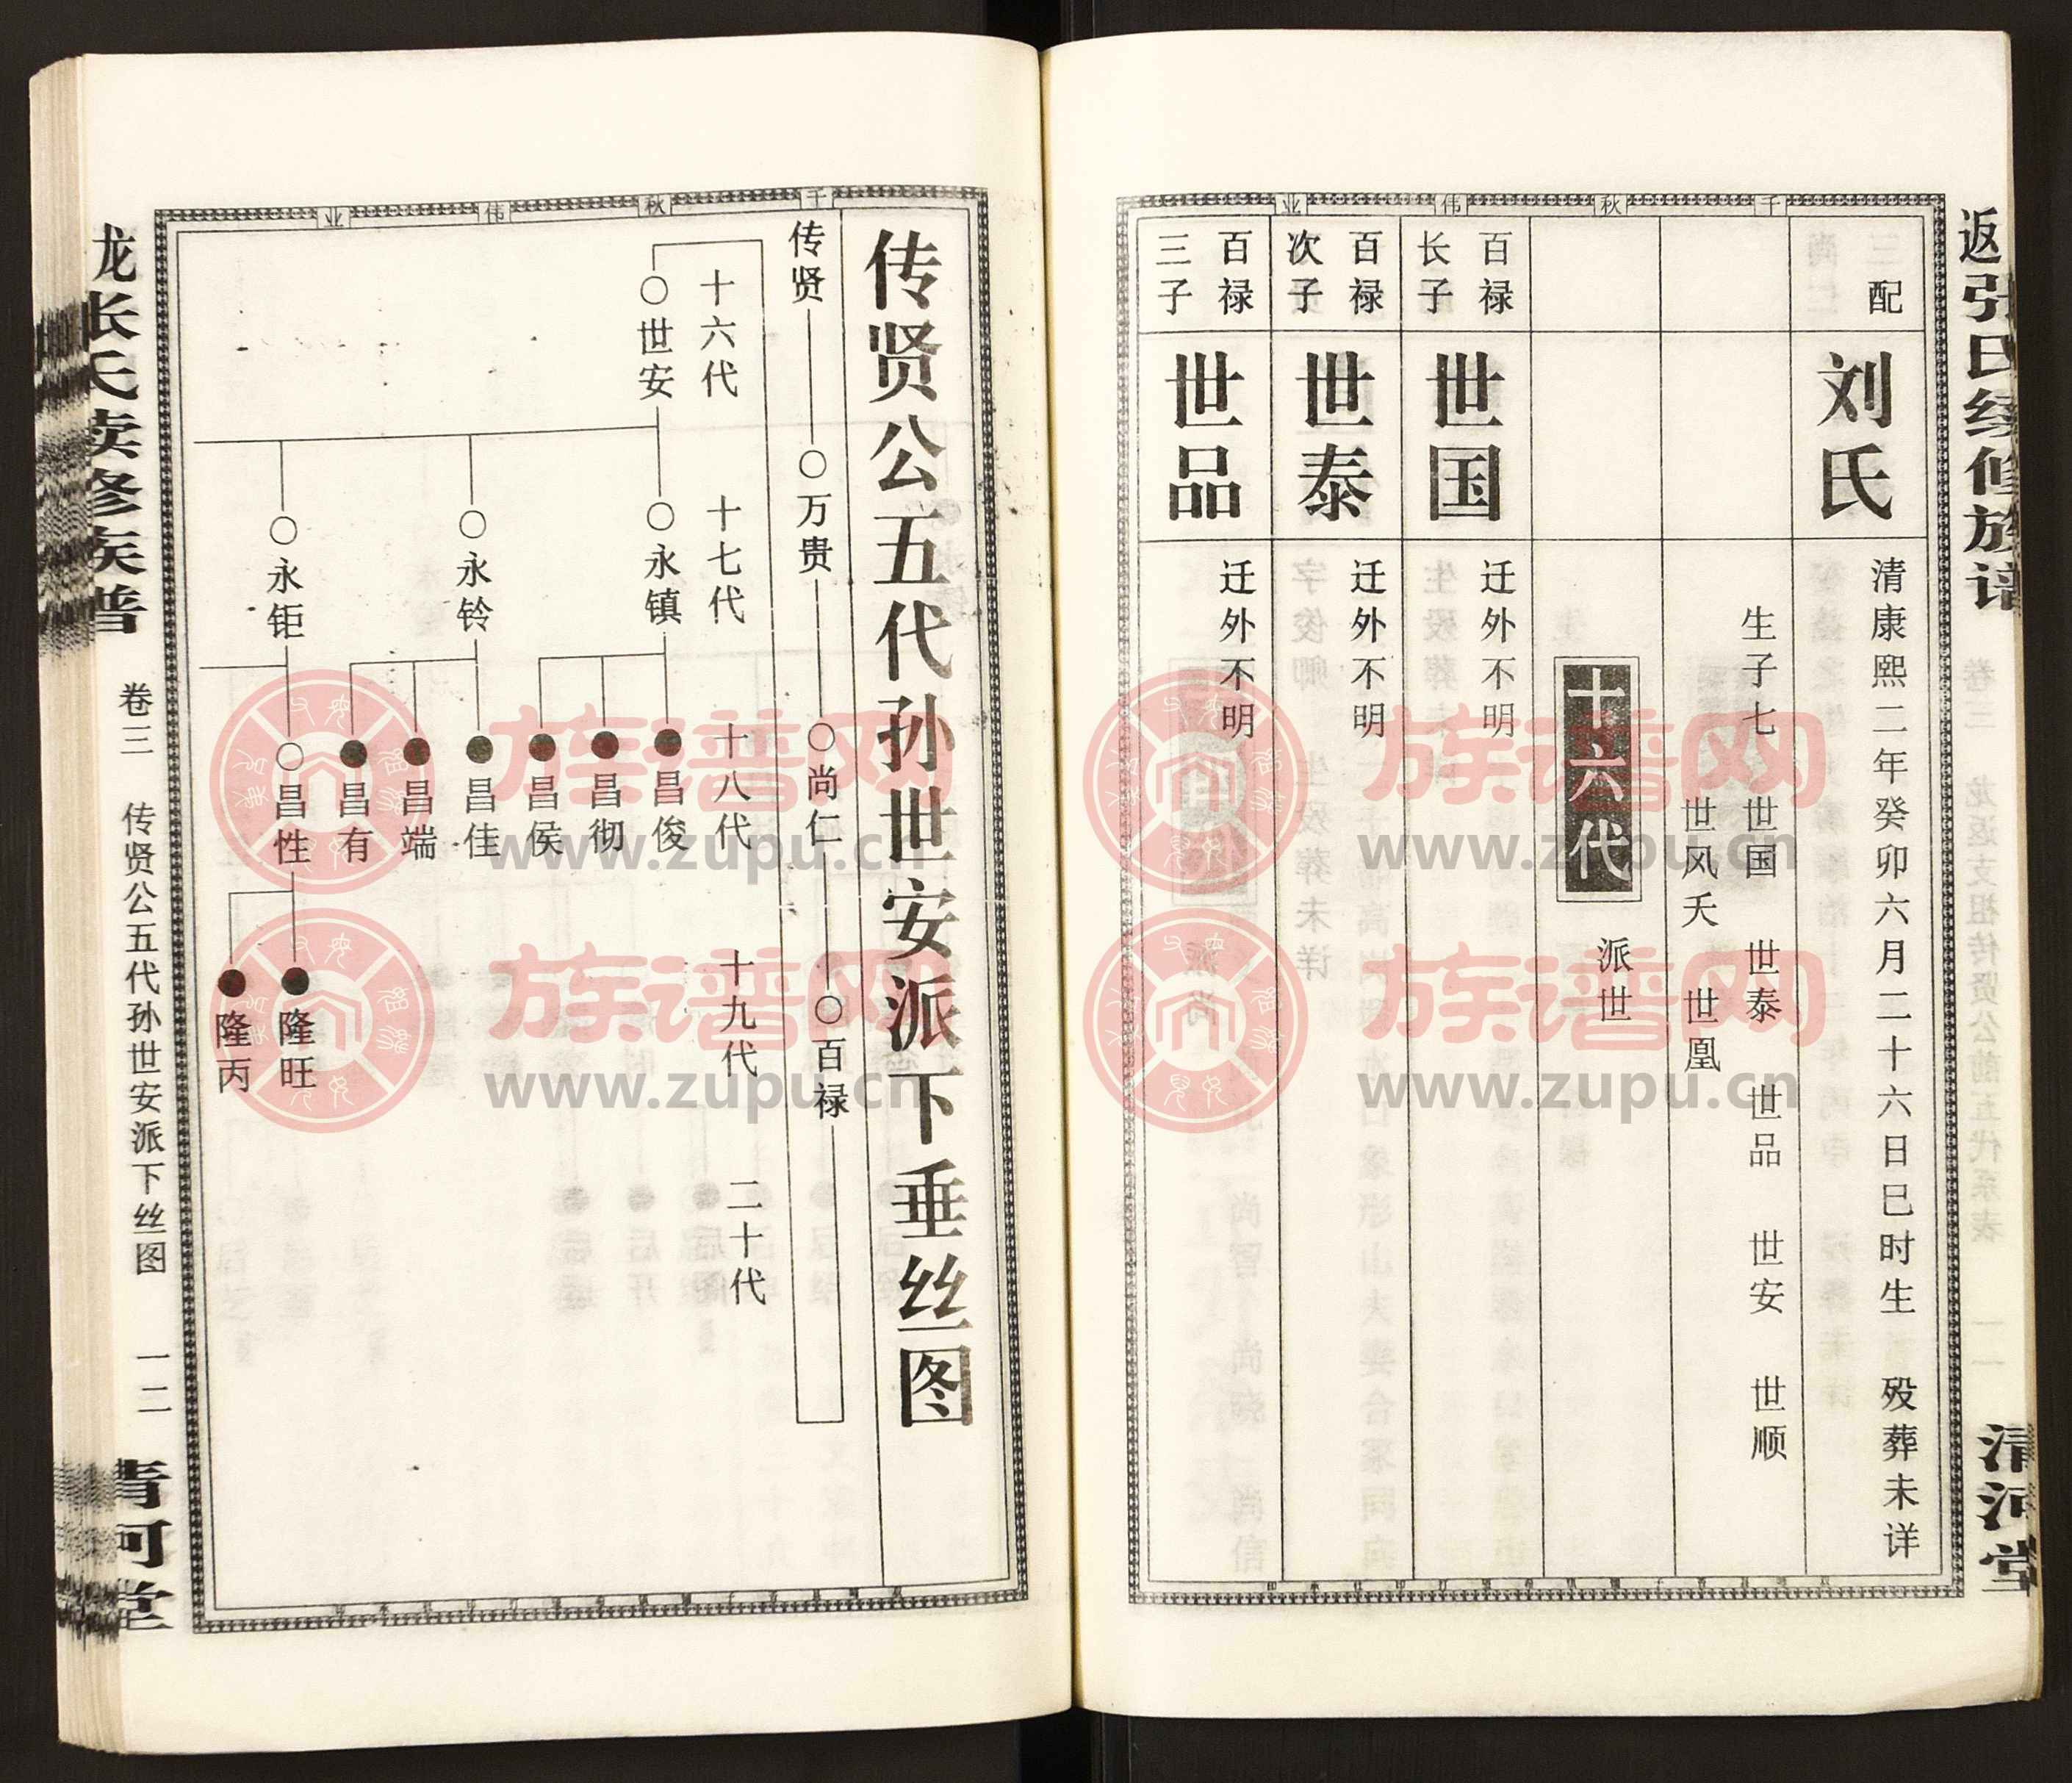 千秋伟业
配
刘氏
清康熙二年癸卯六月二十六日巳时生 殁葬未详
生子七 世国 世泰 世品 世安 世顺
世风夭 世凰
十六代
派世
百禄
长子
世国
迁外不明
百禄
次子
世泰
迁外不明
百禄
三子
世品
迁外不明
清河堂
千秋伟业
传贤公五代孙世安派下垂丝图
传贤
○万贵
○尚仁
○百禄
十六代
十七代
十八代
十九代
二十代
○世安
○永镇
○永铃
○永钜
●昌俊
●昌彻
●昌侯
●昌佳
●昌端
●昌有
○昌性
●隆旺
●隆丙
卷三
传贤公五代孙世安派下丝图
一二
族谱网
www.zupu.cn
族谱网
www.zupu.cn
族谱网
www.zupu.cn
族谱网
www.zupu.cn